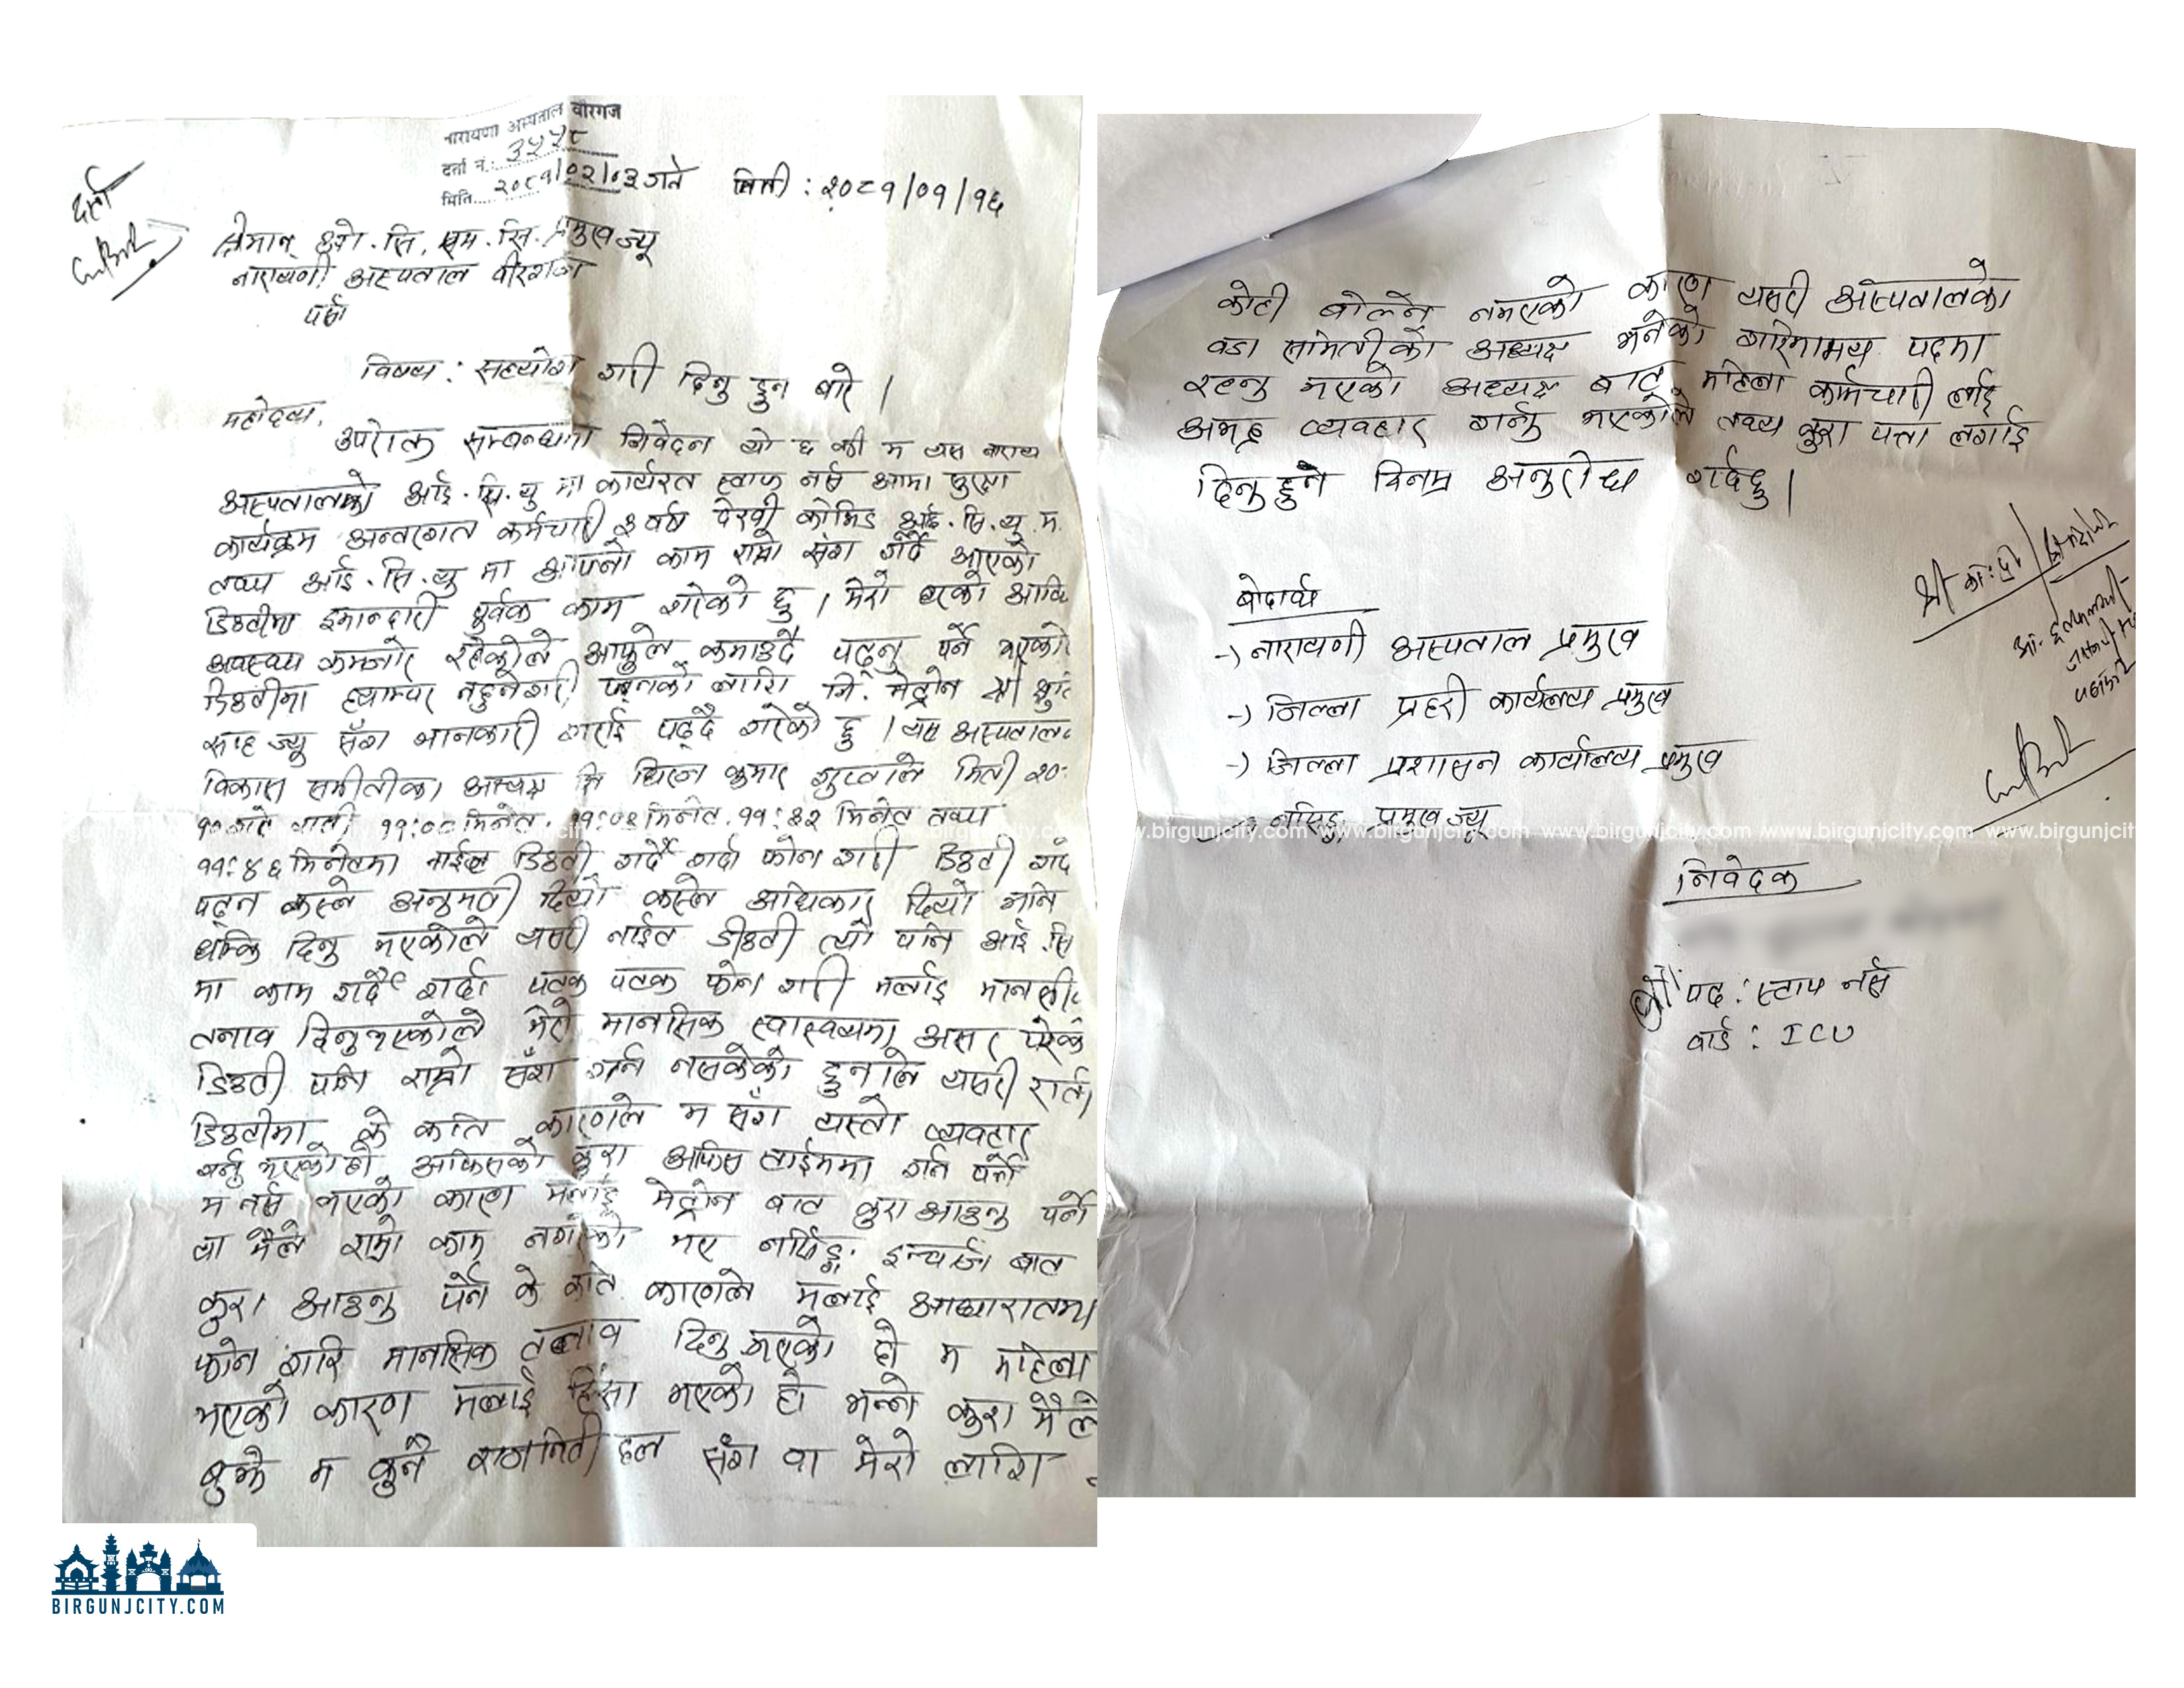 नारायणी अस्पताल वीरगंज
दर्ता नं.: ३४५८
मिति..... २०८१/०२/०३ गते
मिती : २०८१/०१/१६
दर्ता
श्रीमान् ओ.सि.एम.सि. प्रमुख ज्यू
नारायणी अस्पताल वीरगञ्ज
पर्सा
विषय : सहयोग गरी दिनु हुन बारे |
महोदय,
उपरोक्त सम्बन्धमा निवेदन यो छ की म यस नाराय
अस्पतालको आई.सि.यु मा कार्यरत स्टाफ नर्स आमा सुरक्षा
कार्यक्रम अन्तरगत कर्मचारी ३ वर्ष देखी कोभिड आई.सि.यु म.
तथा आई.सि.यु मा आफ्नो काम राम्रो संग गर्दै आएको
डिउटीमा इमान्दारी पुर्वक काम गरेको छु | मेरो घरको आर्थि
अवस्था कमजोर रहेकोले आफुले कमाउदै पढ्नु पर्ने भएको
डिउटीमा ह्याम्पर नहुनेगरी पढ्नको लागि नि. मेट्रोन श्री
साह ज्यू सँग जानकारी गराई पढ्दै गरेको छु | यस अस्पताल
विकास समीतीका अध्यक्ष कुमार गुप्ताले मिती २०
११ गते राती ११:०८ मिनेट, ११:०४ मिनेट, ११:४२ मिनेट तथा
११:४६ मिनेटमा नाईट डिउटी गर्दै गर्दा फोन गरी डिउटी गर्द
पढ्न कस्ले अनुमती दियो कस्ले अधिकार दियो भनि
धम्कि दिनु भएकोले यसरी नाईट डीउटी त्यो पनि आई.सि
मा काम गर्दै गर्दा पटक पटक फोन गरी मलाई मानसी
तनाव दिनुभएकोले मेरो मानसिक स्वास्थ्यमा असर परेको
डिउटी पनि राम्रो सँग गर्न नसकेको हुनाले यसरी राती
डिउटीमा के कति कारणले म सँग यस्तो व्यवहार
गर्नु भएको हो अफिसको कुरा अफिस टाईममा गर्न पर्ने
म नर्स भएको कारण मलाई मेट्रोन बाट कुरा आउनु पर्ने
वा मैले राम्रो काम नगरेको भए नर्सिङ्ग इन्चार्ज बाट
कुरा आउनु पर्ने के कति कारणले मलाई आधारातमा
फोन गरि मानसिक तनाव दिनु भएको हो म महिला
भएको कारण मलाई हिंसा भएको हो भन्ने कुरा मैले
बुझे म कुनै राजनिती दल सँग वा मेरो लागि
कोही बोल्ने नभएको कारण यसरी अस्पतालका
वडा समितीको अध्यक्ष भनेको गरिमामय पदमा
रहनु भएको अध्यक्ष बाट महिला कर्मचारी लाई
अभद्र व्यवहार गर्नु भएकोले तथ्य कुरा पत्ता लगाई
दिनु हुन विनम्र अनुरोध गर्दछु |
बोदार्थ
-) नारायणी अस्पताल प्रमुख
-) जिल्ला प्रहरी कार्यलय प्रमुख
-) जिल्ला प्रशासन कार्यालय प्रमुख
-) नर्सिङ्ग प्रमुख ज्यू
www.birgunjcity.com www.birgunjcity.com www.birgunjcity.com www.birgunjcity.com
निवेदक
पद : स्टाफ नर्स
वार्ड : ICU
BIRGUNJCITY.COM